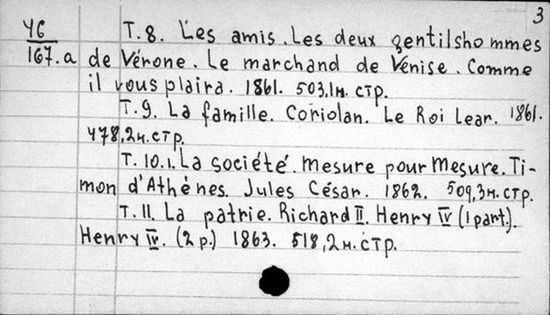 3
46
167.a
T.8. Les amis. Les deux gentilshommes
de Vérone. Le marchand de Venise. Comme
il vous plaira. 1861. 503,1н. стр.
T.9. La famille. Coriolan. Le Roi Lear. 1861.
478,2н. стр.
T. 10.1. La société. Mesure pour Mesure. Ti-
mon d'Athènes. Jules César. 1862. 509,3н. стр.
T. 11. La patrie. Richard II. Henry IV (1 part.).
Henry IV. (2 p.) 1863. 518,2н. стр.